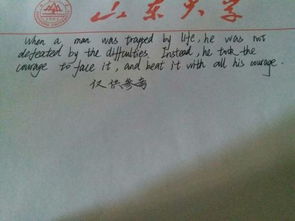 山东大学
When a man was trapped by life, he was not
defeated by the difficulties. Instead, he took the
courage to face it, and beat it with all his courage.
仅供参考